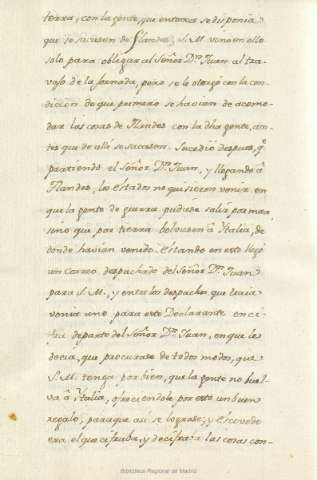 tierra, con la gente, que entonces se disponía
que se sacasen de Flandes; S. M. vino en ello
solo para obligar al Señor Dn. Juan al tra-
vajo de la Jornada, pero se le otorgó con la con-
dicion de que primero se havian de acomo-
dar las cosas de Flandes con la dha gente, an-
tes que de allí se sacasen. Sucedió despues, q.e
partiendo el Señor Dn. Juan, y llegando â
Flandes, los Estados no quisieron venir en
que la gente de guerra pudiese salir por mar,
sino que por tierra bolviesen â Italia, de
donde havian venido. Estando en esto llegó
un Correo despachado del Señor Dn. Juan
para S. M., y entre los despachos que traia
venia uno para este Declarante en ci-
fra de parte del Señor Dn. Juan, en que le
decia, que procurase de todos modos, que
S. M. tenga por bien, que la gente no buel-
va â Italia, ofreciendole por esto un buen
regalo, para que asi se lograse; y Escovedo
era el que cifraba, y decifraba las cosas con-
Biblioteca Regional de Madrid